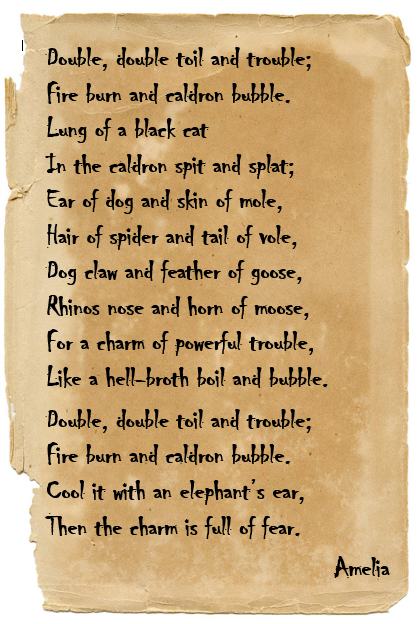 Double, double toil and trouble;
Fire burn and caldron bubble.
Lung of a black cat
In the caldron spit and splat;
Ear of dog and skin of mole,
Hair of spider and tail of vole,
Dog claw and feather of goose,
Rhinos nose and horn of moose,
For a charm of powerful trouble,
Like a hell-broth boil and bubble.
Double, double toil and trouble;
Fire burn and caldron bubble.
Cool it with an elephant's ear,
Then the charm is full of fear.
Amelia